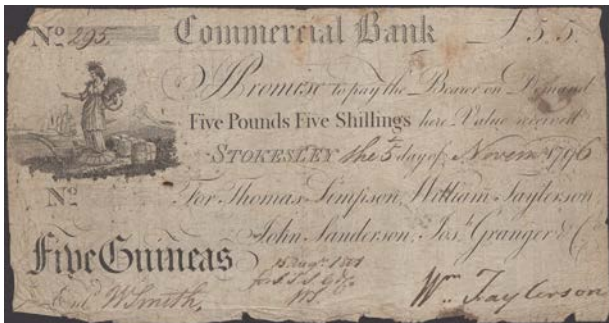 No. 295 Commercial Bank £5.5.
I Promise to pay the Bearer on Demand
Five Pounds Five Shillings here Value received
STOKESLEY the 5 day of Novem 1796
No. For Thomas Simpson, William Taylerson
John Sanderson, Jos.h Granger & Co.
Five Guineas
15 Augt. 1801
Entd. W Smith. Wm. Taylerson